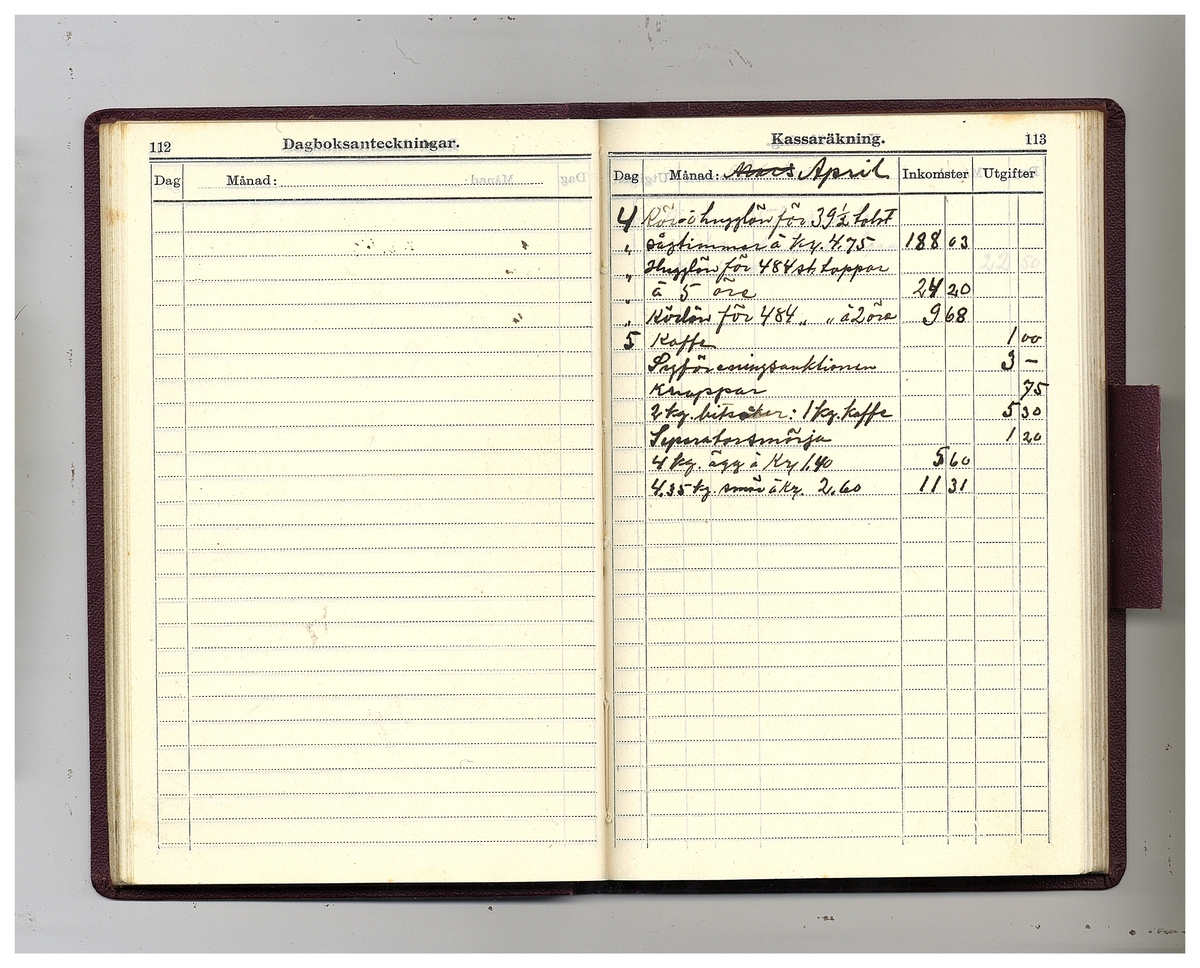 112
Dagboksanteckningar.
Dag Månad:
Kassaräkning. 113
Dag Månad: Mars April Inkomster Utgifter
4 Kör- o hugglön för 39 ½ tolst
" sågtimmer á Kr. 4.75 188 03
" Hugglön för 484 st. toppar
" á 5 öre 24 20
" Körlön för 484 " " á 2 öre 9 68
5 Kaffe 1 00
Syföreningsauktionen 3 –
Knappar 75
2 kg. bitsocker: 1 kg. kaffe 5 30
Seperatorsmörja 1 20
4 kg. ägg á Kr 1.40 5 60
4.35 kg. smör á Kr. 2.60 11 31